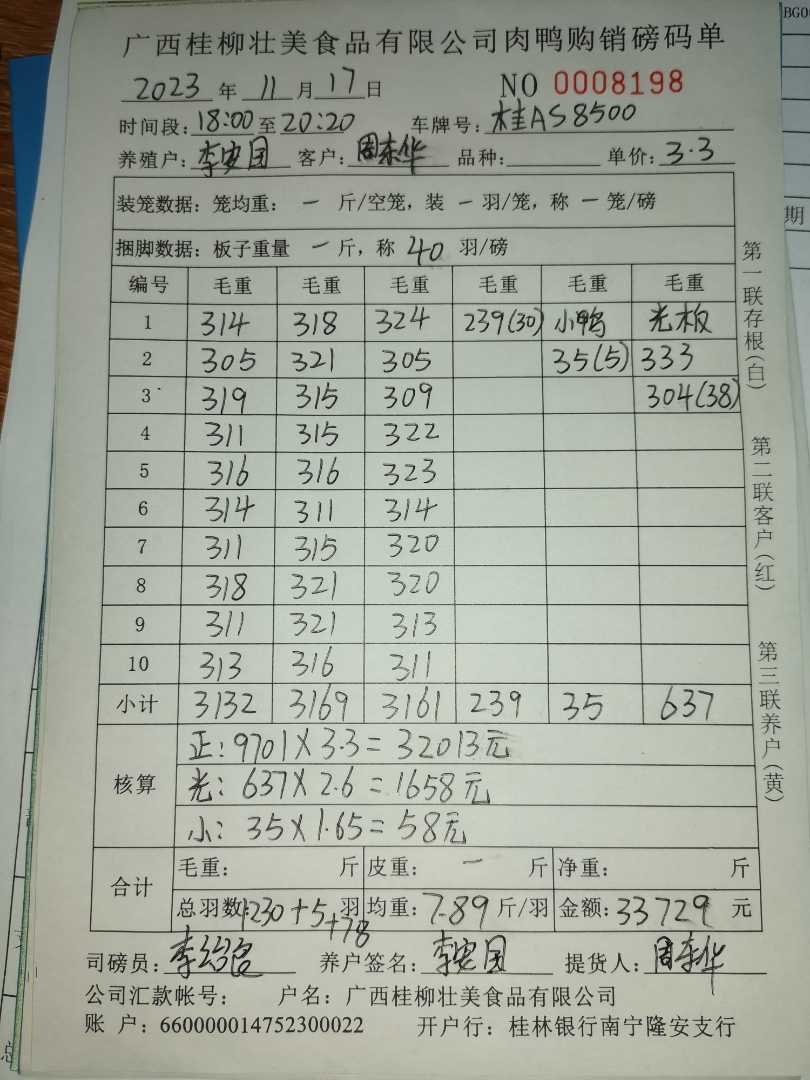 广西桂柳壮美食品有限公司肉鸭购销磅码单
2023 年 11 月 17 日 NO 0008198
时间段: 18:00 至 20:20 车牌号: 桂AS8500
养殖户: 李安团 客户: 周东华 品种: 单价: 3.3
装笼数据: 笼均重: 一 斤/空笼, 装 一 羽/笼, 称 一 笼/磅
捆脚数据: 板子重量 一 斤, 称 40 羽/磅
编号 毛重 毛重 毛重 毛重 毛重 毛重
1 314 318 324 239(30) 小鸭 光板
2 305 321 305 35(5) 333
3 319 315 309 304(38)
4 311 315 322
5 316 316 323
6 314 311 314
7 311 315 320
8 318 321 320
9 311 321 313
10 313 316 311
小计 3132 3169 3161 239 35 637
核算 正: 9701 X 3.3 = 32013元
光: 637 X 2.6 = 1658元
小: 35 X 1.65 = 58元
合计 毛重: 斤 皮重: 一 斤 净重: 斤
总羽数: 1230+5+78 羽 均重: 7.89 斤/羽 金额: 33729 元
司磅员: 养户签名: 李安团 提货人: 周东华
公司汇款帐号: 户名: 广西桂柳壮美食品有限公司
账 户: 660000014752300022 开户行: 桂林银行南宁隆安支行
第一联存根(白)
第二联客户(红)
第三联养户(黄)
期